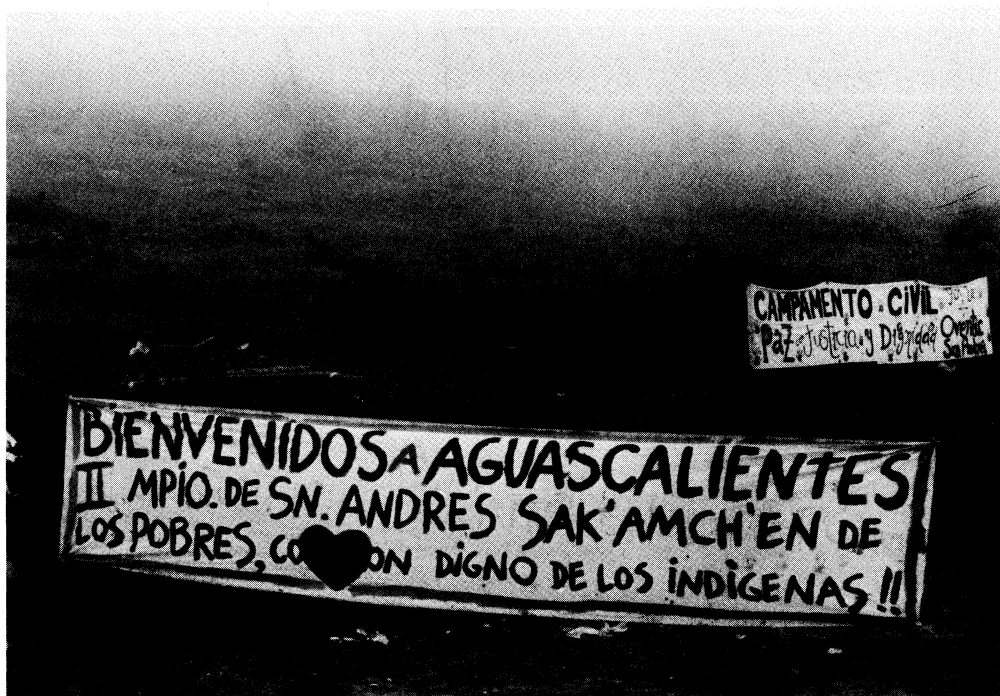 CAMPAMENTO . CiViL
PaZ Justicia y Dignidad Oventic
San Andres
BiENVENiDOS A AGUASCALIENTES
II MPiO. DE SN. ANDRES SAK'AMCH'EN DE
LOS POBRES, CO ON DiGNO DE LOS iNDiGENAS !!